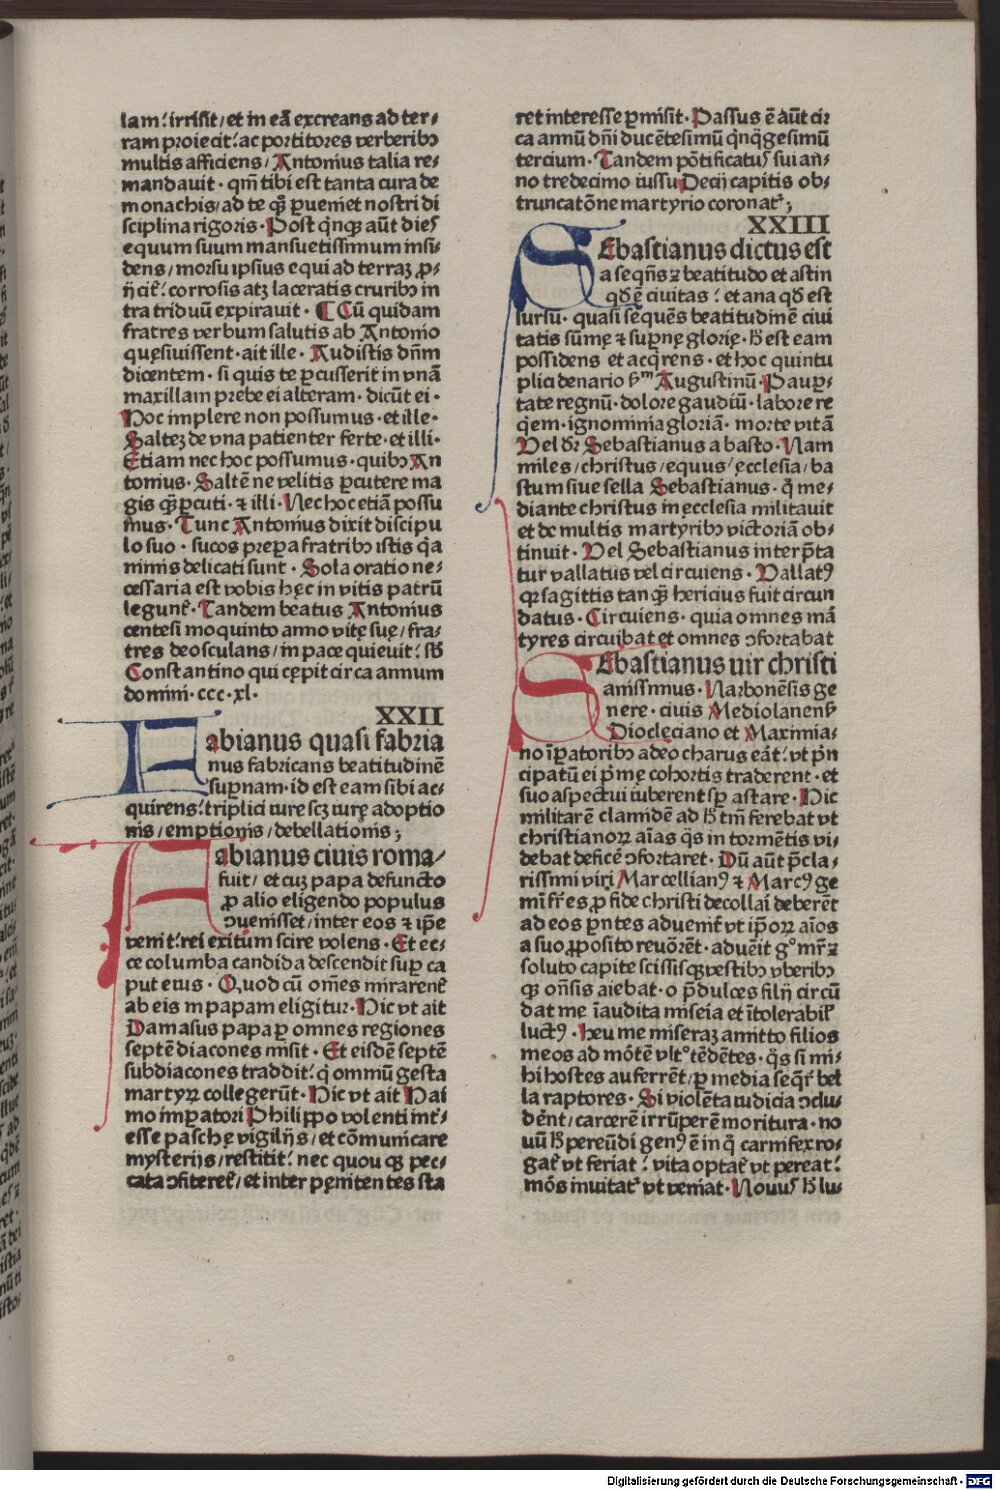 lam: irrisit/ et in eā excreans ad ter⸗
ram proiecit: ac portitores verberibꝫ
multis afficiens/ Antonius talia re⸗
mandauit · qm̄ tibi est tanta cura de
monachis/ ad te qꝫ̄ ꝑueniet nostri di
sciplina rigoris · Post qͥnqꝫ aūt dies
equum suum mansuetissimum insi⸗
dens/ morsu ipsius equi ad terraꝫ ꝓ⸗
ijcit᷑: corrosis atqꝫ laceratis cruribꝫ in
tra triduū expirauit · ¶ Cū quidam
fratres verbum salutis ab Antonio
quęsiuissent · ait ille · Audistis dn̄m
dicentem · si quis te ꝑcusserit in vnā
maxillam prebe ei alteram · dicūt ei ·
Hoc implere non possumus · et ille ·
Salteꝫ de vna patienter ferte · et illi ·
Etiam nec hoc possumus · quibꝫ An
tonius · Saltē ne velitis ꝑcutere ma
gis qꝫ̄ ꝑcuti · ⁊ illi · Nec hoc etiā possu
mus · Tunc Antonius dixit discipu
lo suo · sucos preꝑa fratribꝫ istis qͥa
nimis delicati sunt · Sola oratio ne⸗
cessaria est vobis hęc in vitis patrū
legunt᷑ · Tandem beatus Antonius
centesimo quinto anno vitę suę/ fra⸗
tres deosculans/ in pace quieuit: sb̄
Constantino qui cępit circa annum
domini · ccc · xl ·
XXII
Fabianus quasi fabria
nus fabricans beatitudinē
suꝑnam · id est eam sibi ac⸗
quirens: triplici iure scꝫ iurę adoptio
nis/ emptionis/ debellationis;
Fabianus ciuis roma⸗
fuit/ et cuꝫ papa defuncto
ꝓ alio eligendo populus
ↄuenisset/ inter eos ⁊ ip̄e
venit: rei exitum scire volens · Et ec⸗
ce columba candida descendit suꝑ ca
put eius · Quod cū om̄es mirarent᷑
ab eis in papam eligitur · Hic vt ait
Damasus papa ꝑ omnes regiones
septē diacones misit · Et eisdē septē
subdiacones traddit: qͥ omniū gesta
martyꝝ collegerūt · Hic vt ait Hai
mo imꝑatori Philippo volenti int᷑⸗
esse paschę vigilijs/ et cōmunicare
mysterijs/ restitit: nec quousqꝫ pec⸗
cata ↄfiteret᷑/ et inter pęnitentes sta
ret interesse ꝑmisit · Passus ē aūt cir
ca annū dn̄i ducētesimū qͥnqͣgesimū
tercium · Tandem pōtificatus sui an⸗
no tredecimo iussu Decij capitis ob⸗
truncatōne martyrio coronat᷑;
XXIII
Sebastianus dictus est
a seqn̄s ⁊ beatitudo et astin
qd̄ ē ciuitas: et ana qd̄ est
sursū · quasi sequēs beatitudinē ciui
tatis sūmę ⁊ suꝑnę glorię · h̄ est eam
possidens et acqͥrens · et hoc quintu
plici denario ẜm Augustinū · Pauꝑ⸗
tate regnū · dolore gaudiū · labore re
qͥem · ignominia gloriā · morte vitā
Vel dr̄ Sebastianus a basto · Nam
miles/ christus/ equus/ ęcclesia/ ba
stum siue sella Sebastianus · qͦ me⸗
diante christus in ęcclesia militauit
et de multis martyribꝫ victoriā ob⸗
tinuit · Vel Sebastianus interp̄ta
tur vallatus vel circuiens · Vallatꝰ
qꝛ sagittis tanqꝫ̄ hericius fuit circun
datus · Circuiens · quia omnes mā
tyres circuibat et omnes ↄfortabat
Sebastianus uir christi
anissimus · Narbonēsis ge
nere · ciuis Mediolanensis
Diocleciano et Maximia⸗
no īꝑatoribꝫ adeo charus eāt: vt pͥn
cipatū ei pͥmę cohortis traderent · et
suo aspectui iuberent sꝑ astare · Hic
militarē clamidē ad h̄ tm̄ ferebat vt
christianoꝝ aīas qͣs in tormētis vi⸗
debat deficē ↄfortaret · Dū aūt p̄cla⸗
rissimi viri Marcellianꝰ ⁊ Marcꝰ ge
mī fr̄es ꝓ fide christi decollai deberēt
ad eos ꝑntes aduenit᷑ vt ip̄oꝝ aīos
a suo ꝓposito reuōrēt · aduēit gͦ mr̄ ⁊
soluto capite scissisqꝫ vestibꝫ vberibꝫ
qꝫ on̄sis aiebat · o p̄dulces filij circū
dat me īaudita miseia et ītolerabil̕
luctꝰ · Heu me miseraꝫ amitto filios
meos ad mōtē vltͦ tēdētes · qͦs si mi⸗
hi hostes auferrēt/ ꝑ media seqͥr̄ bel
la raptores · Si violēta iudicia ↄclu⸗
dēnt/ carcerē irrūꝑerē moritura · no
uū h̄ pereūdi genꝰ ē in qͦ carnifex ro⸗
gat᷑ vt feriat: vita optat᷑ vt pereat:
mōs inuitat᷑ vt veniat · Nouus h̄ lu⸗
Digitalisierung gefördert durch die Deutsche Forschungsgemeinschaft - DFG